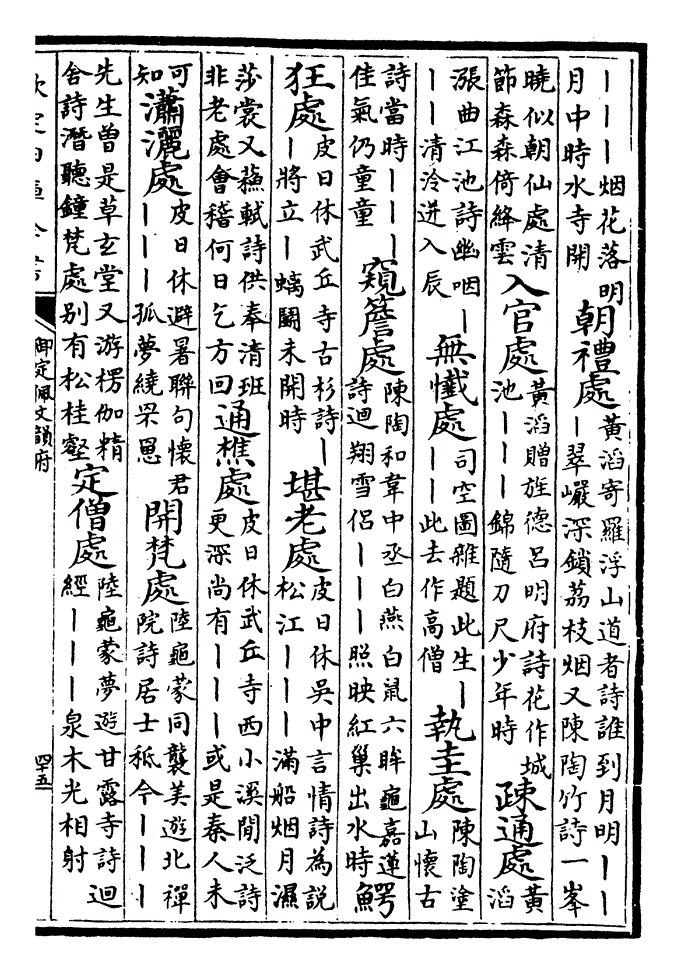 ｜｜｜烟花落明
月中時水寺開
朝禮處
黃滔寄羅浮山道者詩誰到月明｜｜
｜翠巖深鎖荔枝烟又陳陶竹詩一峯
曉似朝仙處清
節森森倚絳雲
入官處
黃滔贈旌德呂明府詩花作城
池｜｜｜錦隨刀尺少年時
疎通處
黃
滔
漲曲江池詩幽咽｜
｜｜清泠迸入辰
無懴處
司空圖雜題此生｜
｜｜此去作高僧
執圭處
陳陶塗
山懷古
詩當時｜｜｜
佳氣仍童童
窺簷處
陳陶和韋中丞白燕白鼠六眸龜嘉蓮
詩迴翔雪侶｜｜｜照映紅巢出水時
鰐
狂處
皮日休武丘寺古杉詩｜
｜將立｜螭鬭未開時
堪老處
皮日休吳中言情詩為説
松江｜｜｜滿船烟月濕
莎裳又蘓軾詩供奉清班
非老處會稽何日乞方回
通樵處
皮日休武丘寺西小溪閒泛詩
更深尚有｜｜｜或是秦人未
可
知
瀟灑處
皮日休避暑聯句懷君
｜｜｜孤夢繞罘罳
開梵處
陸龜蒙同襲美遊北禪
院詩居士秪今｜｜｜
先生曾是草玄堂又游楞伽精
舍詩潛聽鐘梵處别有松桂壑
定僧處
陸龜蒙夢遊甘露寺詩迴
經｜｜｜泉木光相射
欽定四庫全書
御定佩文韻府
四十五